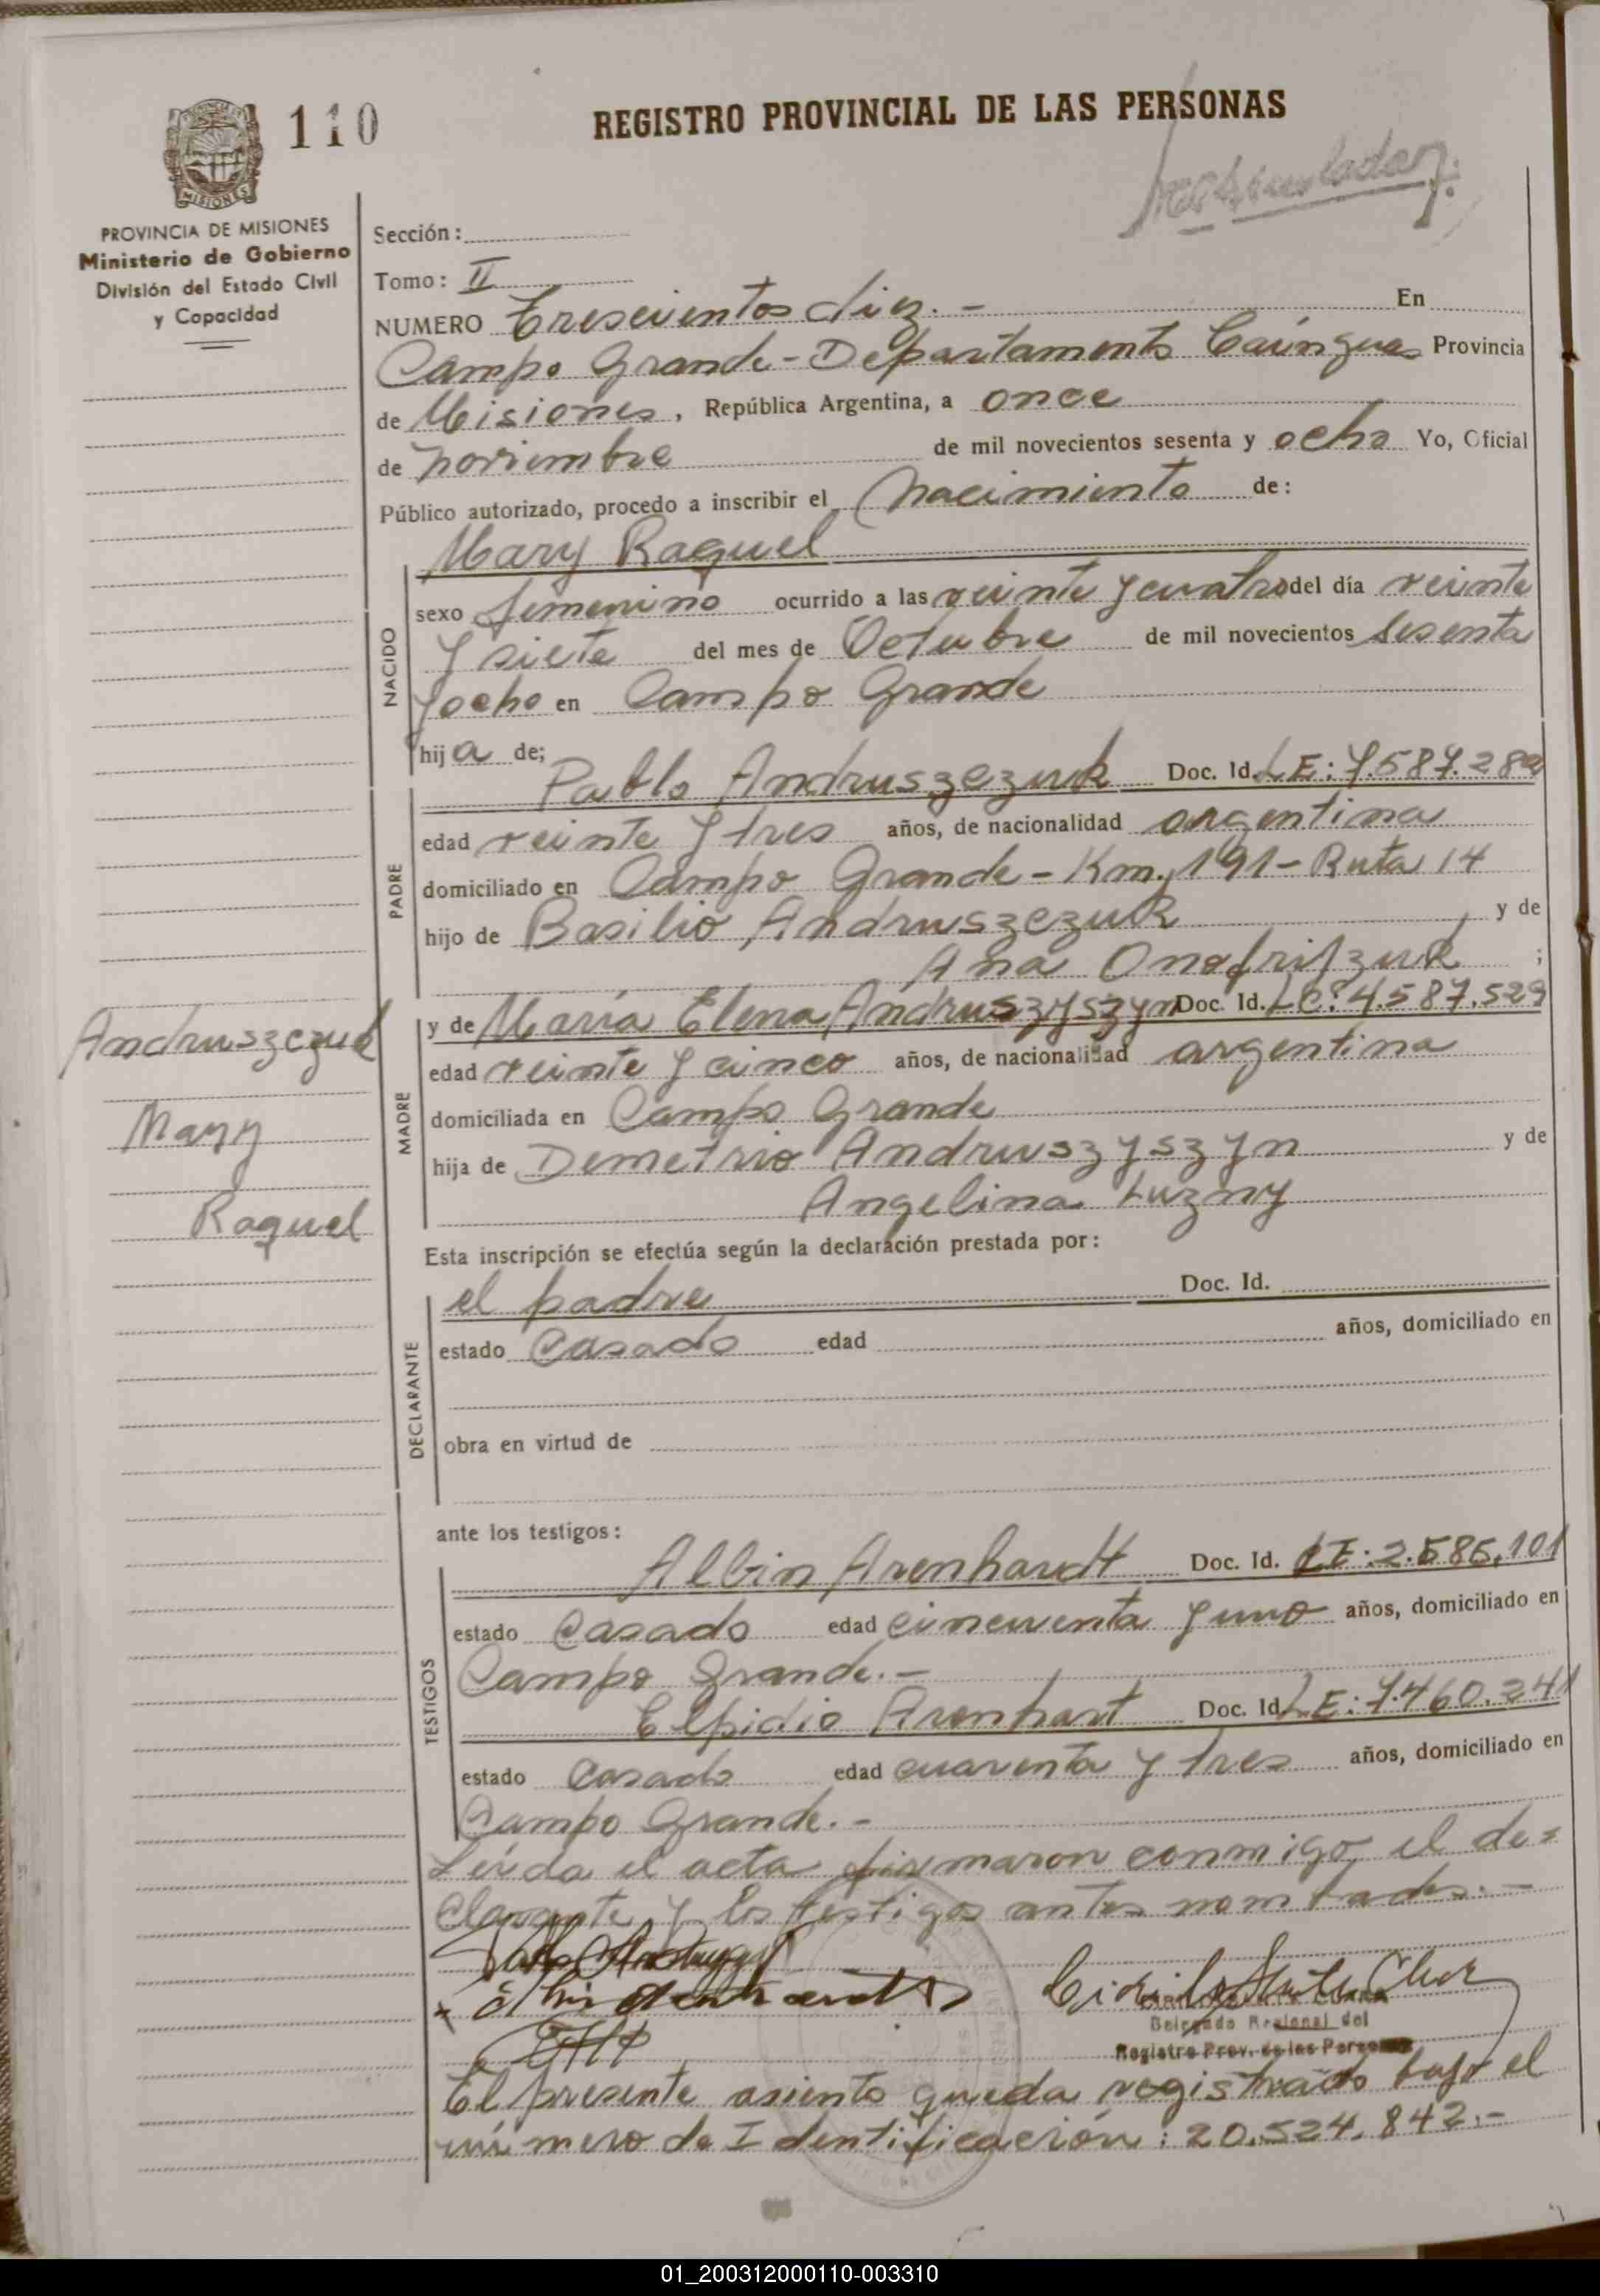 110
REGISTRO PROVINCIAL DE LAS PERSONAS
MISIONES
PROVINCIA DE MISIONES
Ministerio de Gobierno
División del Estado Civil
y Capacidad
Sección:
Tomo: II
NUMERO Trescientos diez.- En
Campo Grande - Departamento Cainguas Provincia
de Misiones, República Argentina, a once
de noviembre de mil novecientos sesenta y ocho Yo, Oficial
Público autorizado, procedo a inscribir el nacimiento de:
Mary Raquel
NACIDO
sexo femenino ocurrido a las veinte y cuatro del día veinte
y siete del mes de Octubre de mil novecientos sesenta
y ocho en Campo Grande
hija de;
PADRE
Pablo Andruszczuk Doc. Id. LE: 7.587.280
edad veinte y tres años, de nacionalidad argentina
domiciliado en Campo Grande - Km. 191 - Ruta 14
hijo de Basilio Andruszczuk y de
Ana Onofrijzuk ;
MADRE
y de María Elena Andruszyszyn Doc. Id. LC: 4.587.529
edad veinte y cinco años, de nacionalidad argentina
domiciliada en Campo Grande
hija de Demetrio Andruszyszyn y de
Angelina Luzny
Andruszczuk
Mary
Raquel
Esta inscripción se efectúa según la declaración prestada por:
DECLARANTE
el padre Doc. Id.
estado Casado edad años, domiciliado en
obra en virtud de
ante los testigos:
TESTIGOS
Albin Arenhardt Doc. Id. LE: 2.585.101
estado Casado edad cincuenta y uno años, domiciliado en
Campo Grande.-
Elpidio Arenhart Doc. Id. LE: 7.460.241
estado Casado edad cuarenta y tres años, domiciliado en
Campo Grande.-
Leída el acta firmaron conmigo, el de=
clarante y los testigos antes nombrados.-
Delegado Regional del
Registro Prov. de las Personas
El presente asiento queda registrado bajo el
número de Identificación: 20.524.842.-
01_200312000110-003310